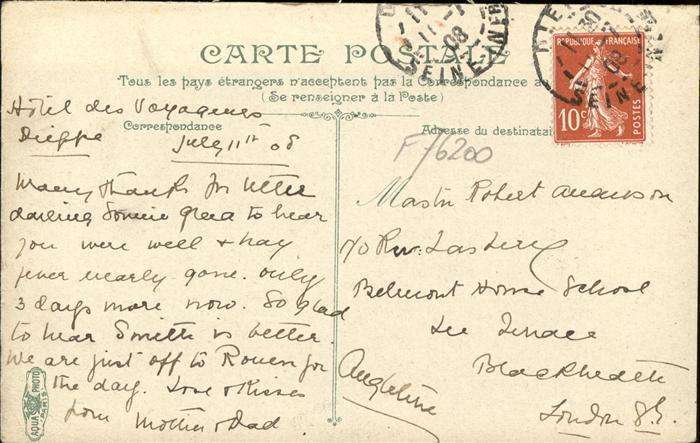 CARTE POSTALE
Tous les pays étrangers n'acceptent pas la Correspondance a
(Se renseigner à la Poste)
Correspondance
Adresse du destinatai
RÉPUBLIQUE FRANÇAISE
10c
POSTES
SEINE
08
F/6200
Hôtel des Voyageurs
Dieppe
July 11th 08
Many thanks for letter
darling Sonnie glad to hear
you were well & hay
fever nearly gone. only
3 days more now. So glad
to hear Smith is better.
We are just off to Rouen for
the day. Love & Kisses
from Mother & Dad.
Master Robert Anderson
c/o Rev:
Belmont House School
Lee Terrace
Blackheath
London S.E.
Angleterre
AQUA PHOTO
PARIS